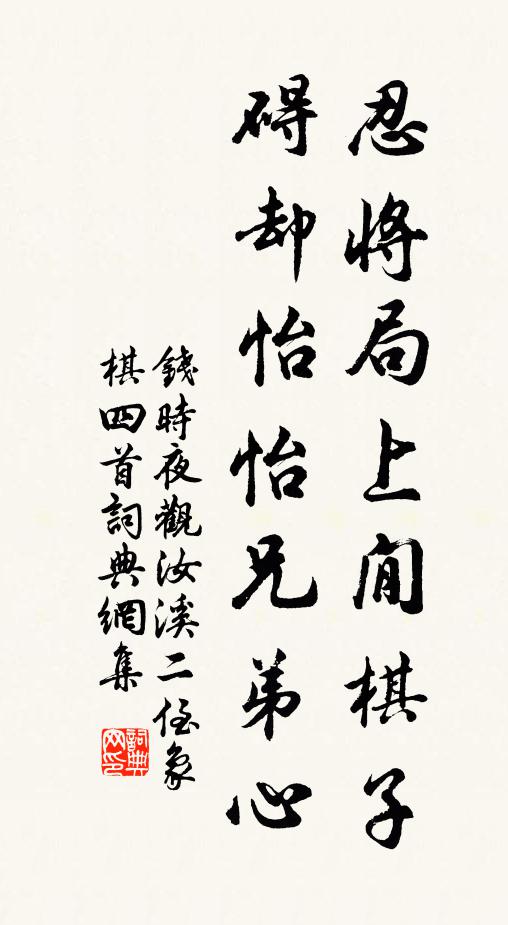 忍將局上閒棋子
碍却怡怡兄弟心
錢時夜觀汝溪二侄象
棋四首詞典網集
詞典
网印